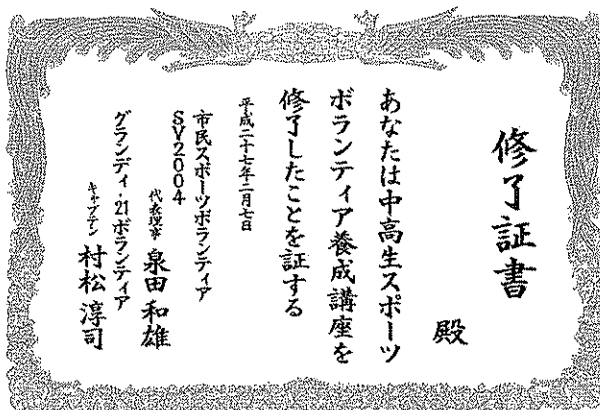 修了証書
殿
あなたは中高生スポーツ
ボランティア養成講座を
修了したことを証する
平成二十七年二月七日
市民スポーツボランティア
SV2004
代表理事 泉田 和雄
グランディ・21ボランティア
キャプテン 村松 淳司